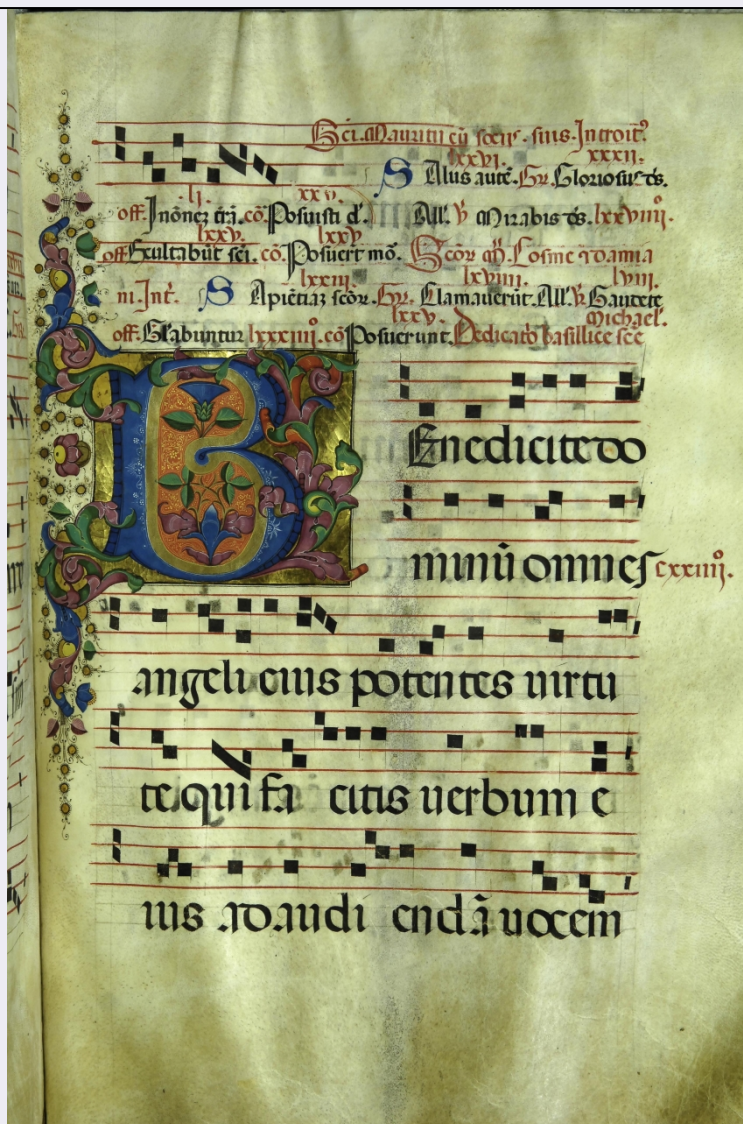 Sci. Mauritii cū socijs. suis. Introit⁹
xxvi. xxxii.
Salus autē. Gr. Gloriosus ds.
li. xxv.
off. In ōnez trā. cō. Posuisti d. All. ℣ Mirabis ds. lxxviiii.
lxxv. lxxv
off Exultabūt sci. cō. Posuert mō. Scōr M̄. Cosme ⁊ damia
lxxiii. lxviiii. lviii.
ni. Int. Sapiētiaz scōr. Gr. Clamauerūt. All. ℣. Gaudete
lxxv. Michael.
off. Głabuntur lxxxiiii. cō Posuerunt. Dedicatō basillice scē
Benedicite do
minū omnes cxxiiii.
angeli eius potentes uirtu
te qui fa citis uerbum e
ius ad audi endā uocem